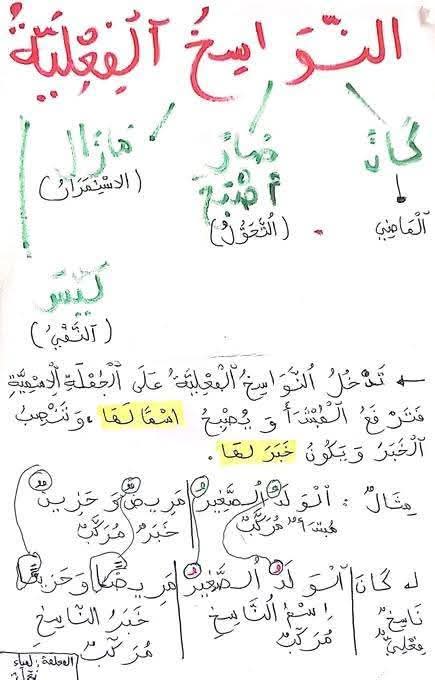 النَّوَاسِخُ الْفِعْلِيَّةُ
كَانَ صَارَ مَازَالَ
أَصْبَحَ
الْمَاضِي (التَّحَوُّلُ) (الاسْتِمْرَارُ)
لَيْسَ
(النَّفْيُ)
← تَدْخُلُ النَّوَاسِخُ الْفِعْلِيَّةُ عَلَى الْجُمْلَةِ الْاِسْمِيَّةِ
فَتَرْفَعُ الْمُبْتَدَأَ وَ يُصْبِحُ اسْمًا لَهَا . وَ تَنْصِبُ
الْخَبَرَ وَ يَكُونُ خَبَرَ لهَا .
مِثَالٌ : الْوَلَدُ الصَّغِيرُ | مَرِيضٌ وَ حَزِينٌ
مُبْتَدَأٌ مُرَكَّبٌ خَبَرٌ مُرَكَّبٌ
كَانَ | الْوَلَدُ الصَّغِيرُ | مَرِيضًا وَ حَزِينًا
نَاسِخٌ اِسْمُ النَّاسِخِ خَبَرُ النَّاسِخِ
فِعْلِيٌّ مُرَكَّبٌ مُرَكَّبٌ
المعلمة : لمياء